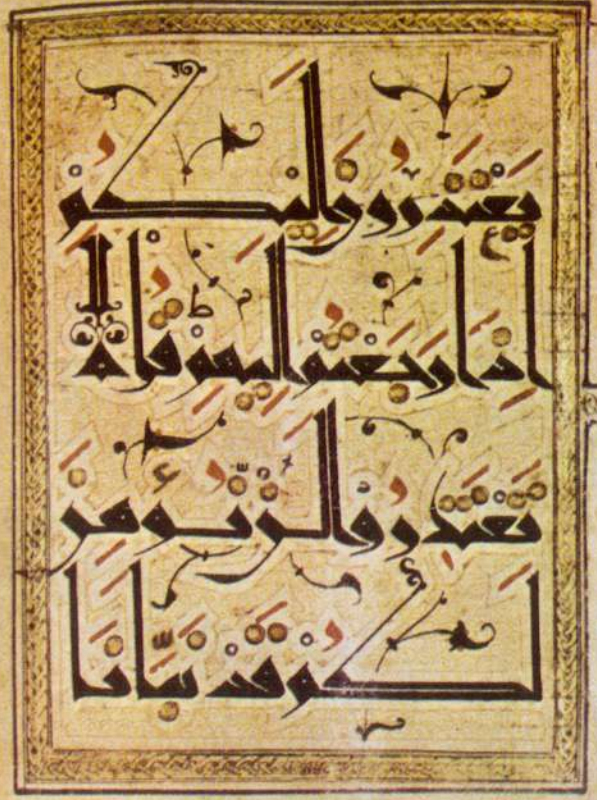 يَعْتَذِرُونَ إِلَيْكُمْ
إِذَا رَجَعْتُمْ إِلَيْهِمْ قُل لَّا
تَعْتَذِرُوا لَن نُّؤْمِنَ
لَكُمْ قَدْ نَبَّأَنَا